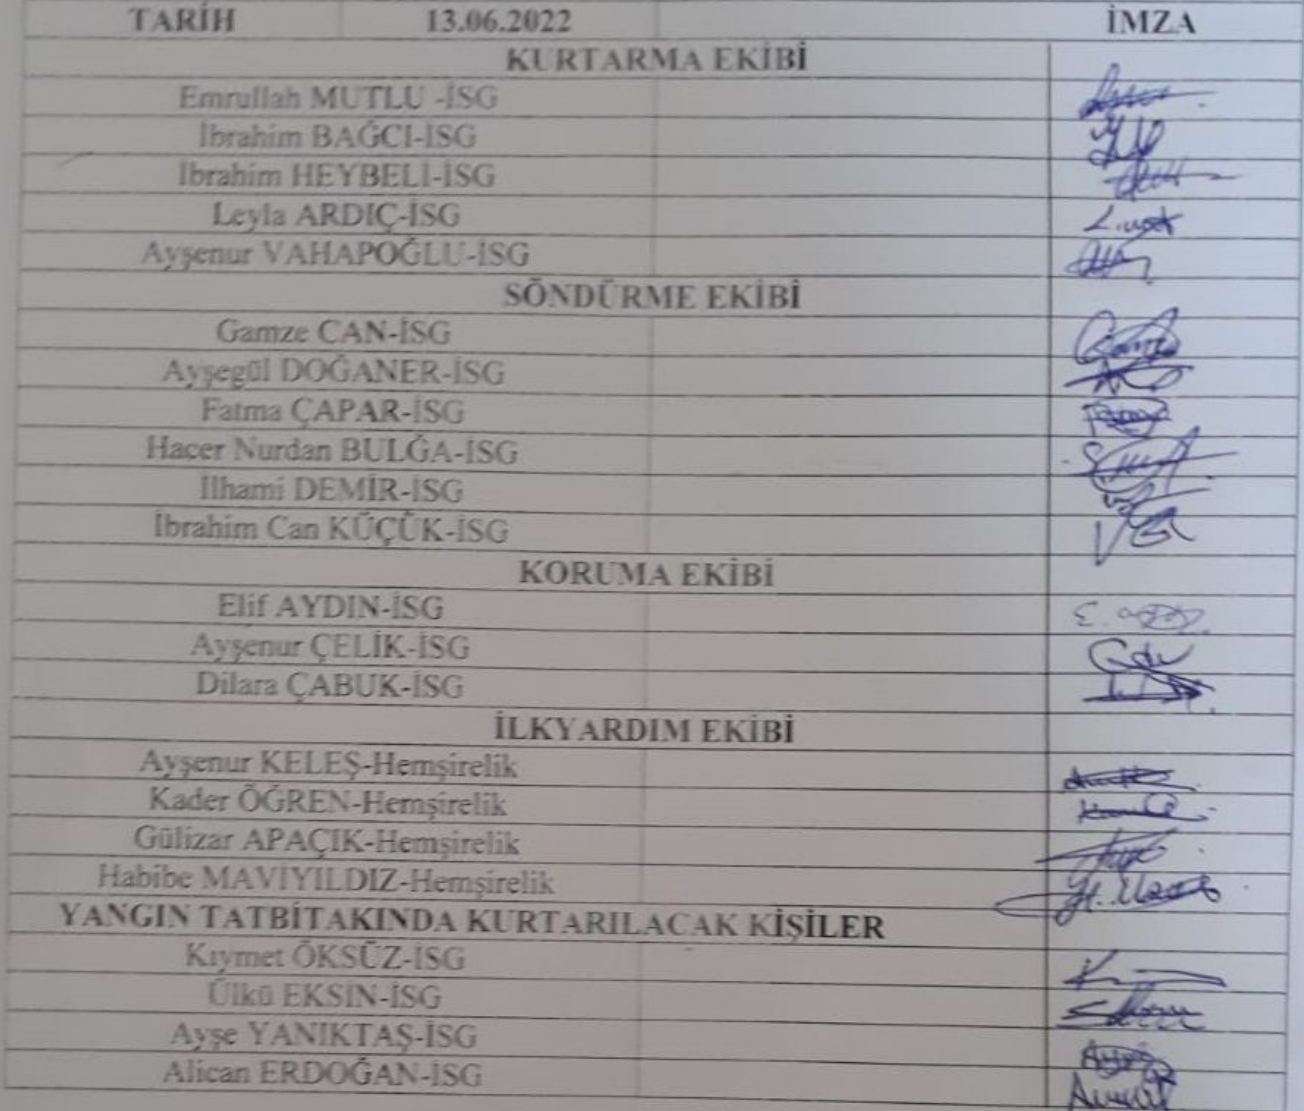 TARİH 13.06.2022 İMZA
KURTARMA EKİBİ
Emrullah MUTLU -İSG
İbrahim BAĞCI-İSG
İbrahim HEYBELİ-İSG
Leyla ARDIÇ-İSG
Ayşenur VAHAPOĞLU-İSG
SÖNDÜRME EKİBİ
Gamze CAN-İSG
Ayşegül DOĞANER-İSG
Fatma ÇAPAR-İSG
Hacer Nurdan BULĞA-İSG
İlhami DEMİR-İSG
İbrahim Can KÜÇÜK-İSG
KORUMA EKİBİ
Elif AYDIN-İSG
Ayşenur ÇELİK-İSG
Dilara ÇABUK-İSG
İLKYARDIM EKİBİ
Ayşenur KELEŞ-Hemşirelik
Kader ÖĞREN-Hemşirelik
Gülizar APAÇIK-Hemşirelik
Habibe MAVİYILDIZ-Hemşirelik
YANGIN TATBİTAKINDA KURTARILACAK KİŞİLER
Kıymet ÖKSÜZ-İSG
Ülkü EKSİN-İSG
Ayşe YANIKTAŞ-İSG
Alican ERDOĞAN-İSG